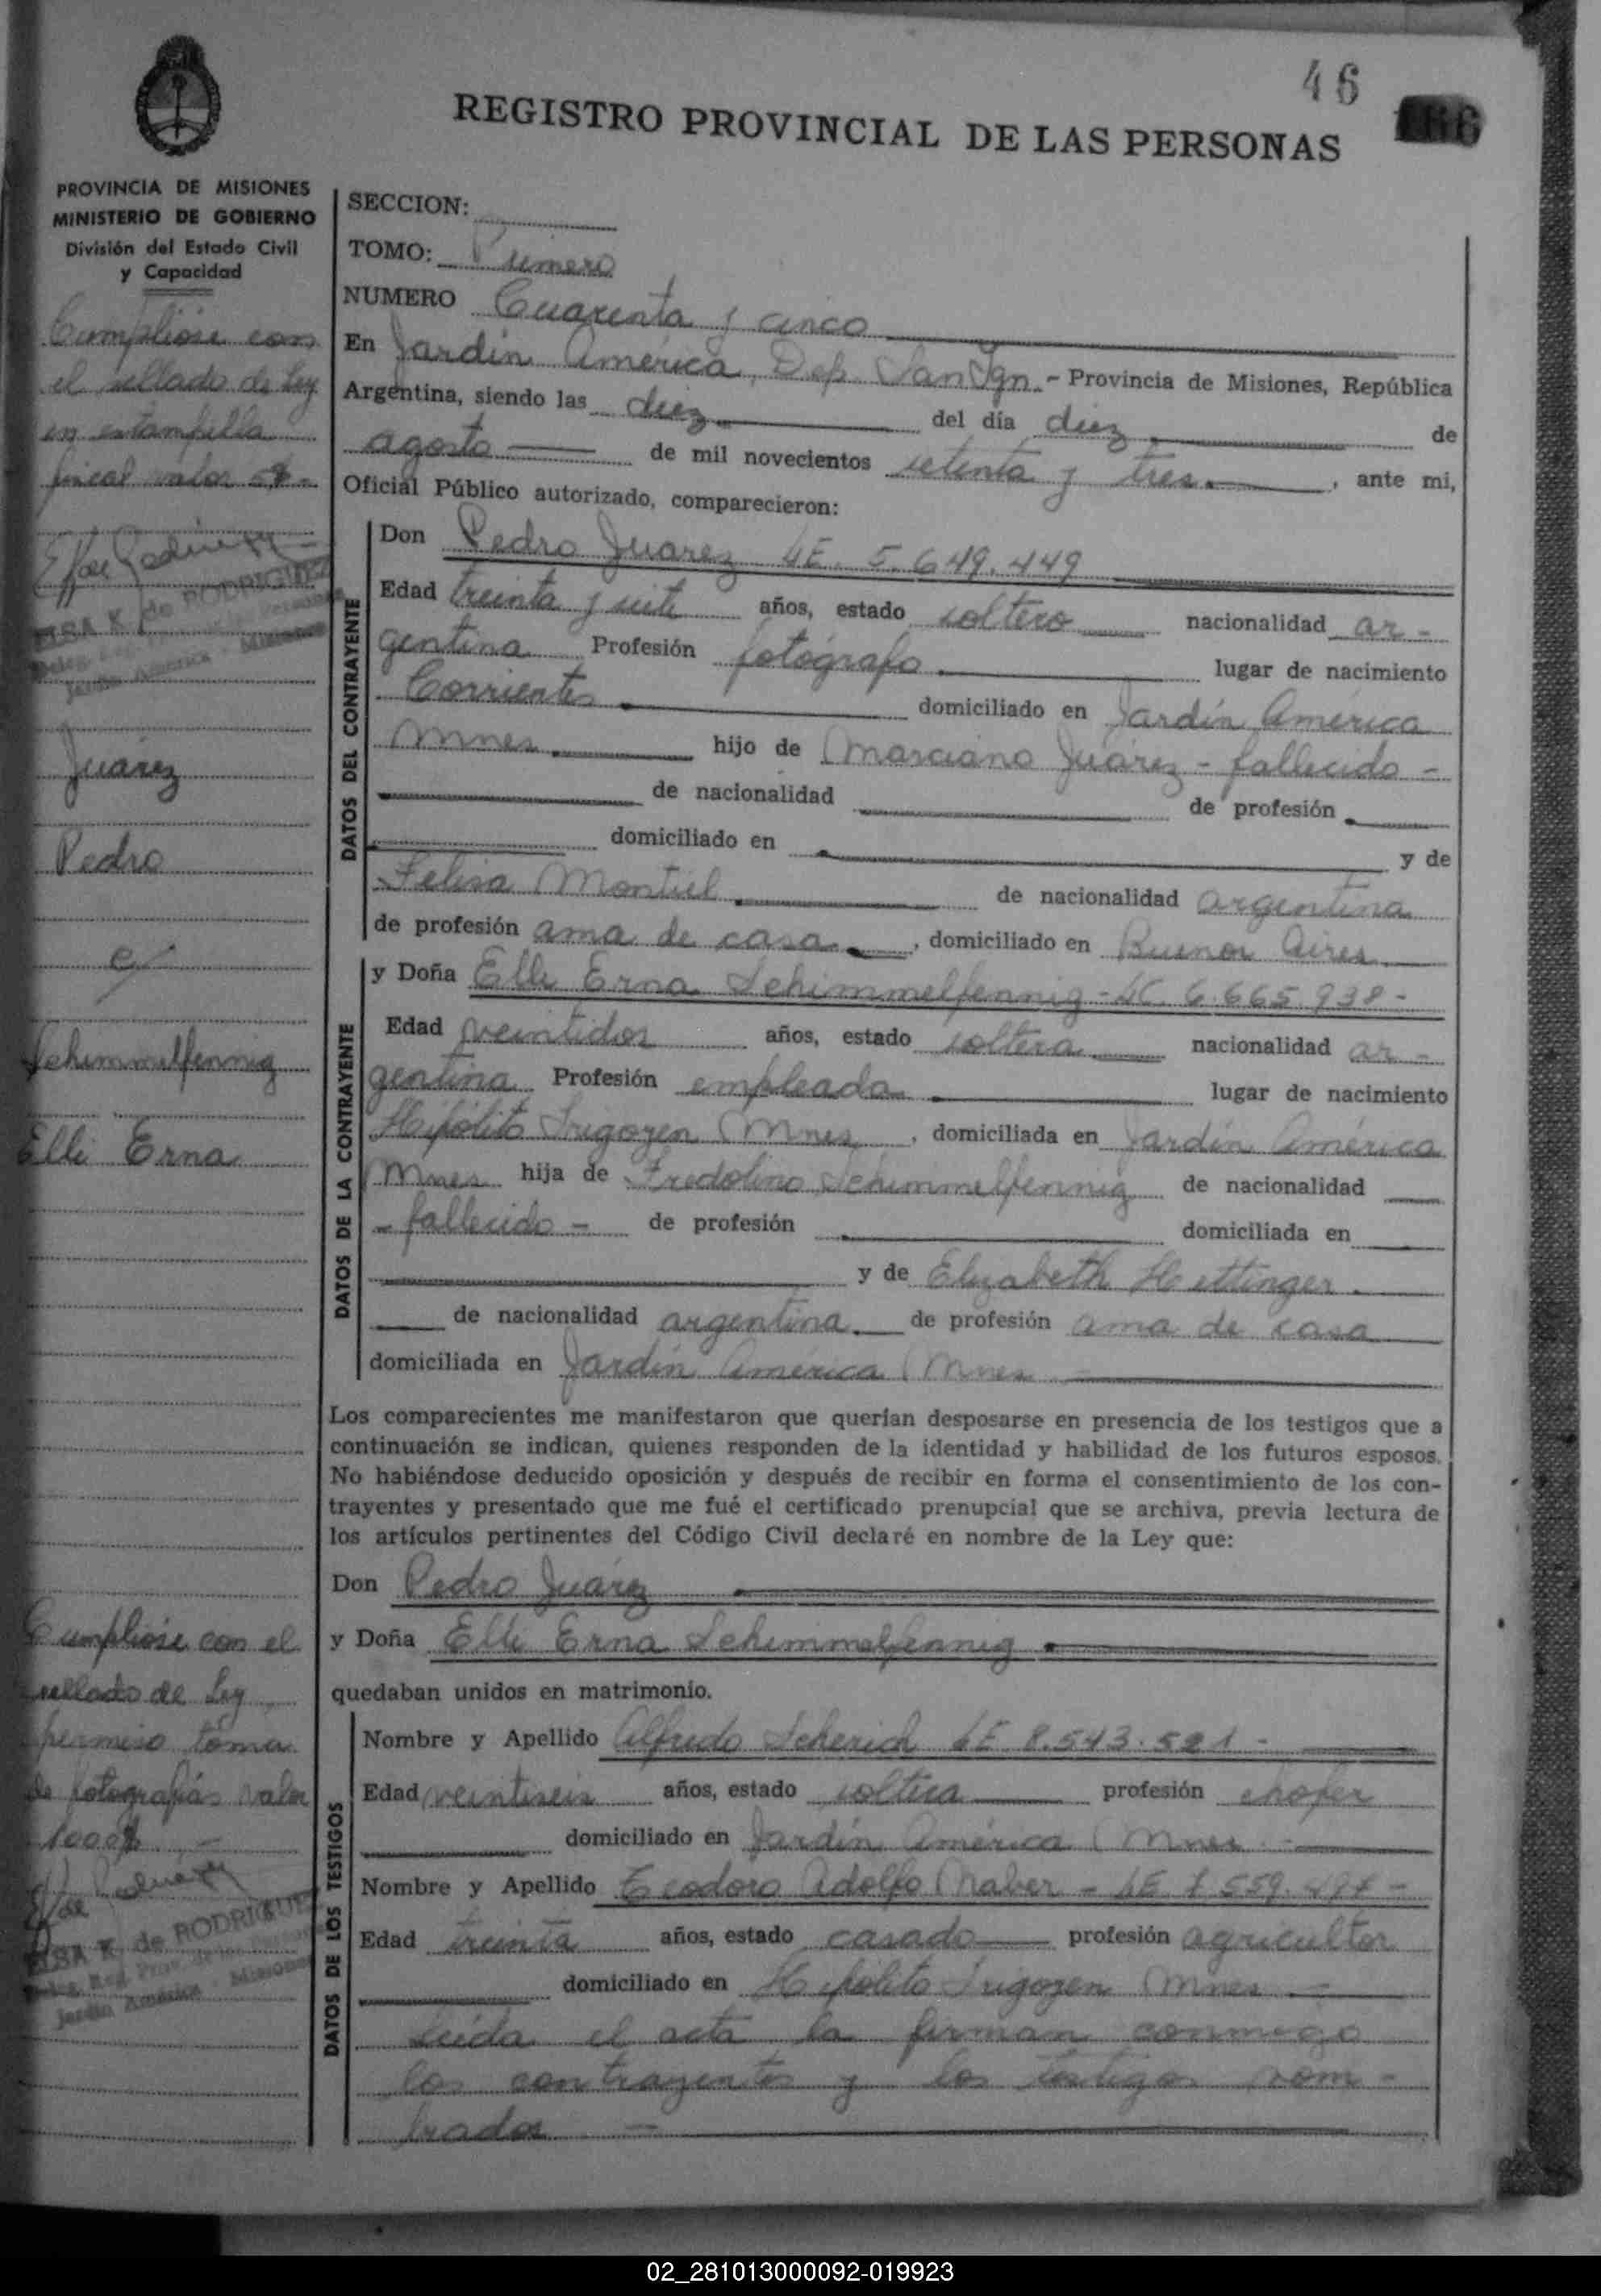 46
REGISTRO PROVINCIAL DE LAS PERSONAS
PROVINCIA DE MISIONES
MINISTERIO DE GOBIERNO
División del Estado Civil
y Capacidad
Cumplióse con
el sellado de Ley
en estampilla
fiscal valor
ELSA K. de RODRIGUEZ
Jardín América - Misiones
Juárez
Pedro
c/
Schimmelfennig
Elli Erna
Cumplióse con el
sellado de Ley
permiso toma
de fotografías valor
1000$ -
ELSA K. de RODRIGUEZ
Deleg. Reg. Prov. de las Personas
Jardín América - Misiones
SECCION:
TOMO: Primero
NUMERO Cuarenta y cinco
En Jardín América, Dep. San Ign. - Provincia de Misiones, República
Argentina, siendo las diez del día diez de
agosto de mil novecientos setenta y tres. , ante mi,
Oficial Público autorizado, comparecieron:
DATOS DEL CONTRAYENTE
Don Pedro Juarez LE. 5.649.449
Edad treinta y siete años, estado soltero nacionalidad ar-
gentina Profesión fotógrafo lugar de nacimiento
Corrientes domiciliado en Jardín América
Mnes. hijo de Marciano Juárez - fallecido -
de nacionalidad de profesión
domiciliado en y de
Felisa Montiel de nacionalidad argentina
de profesión ama de casa. , domiciliado en Buenos Aires
DATOS DE LA CONTRAYENTE
y Doña Elli Erna Schimmelfennig - LC. 6.665.938 -
Edad veintidos años, estado soltera nacionalidad ar-
gentina Profesión empleada lugar de nacimiento
Hipólito Irigoyen Mnes , domiciliada en Jardín América
Mnes hija de Fredolino Schimmelfennig de nacionalidad
- fallecido - de profesión domiciliada en
y de Elizabeth Hettinger
de nacionalidad argentina. de profesión ama de casa
domiciliada en Jardín América Mnes -
Los comparecientes me manifestaron que querían desposarse en presencia de los testigos que a
continuación se indican, quienes responden de la identidad y habilidad de los futuros esposos.
No habiéndose deducido oposición y después de recibir en forma el consentimiento de los con-
trayentes y presentado que me fué el certificado prenupcial que se archiva, previa lectura de
los artículos pertinentes del Código Civil declaré en nombre de la Ley que:
Don Pedro Juárez
y Doña Elli Erna Schimmelfennig
quedaban unidos en matrimonio.
DATOS DE LOS TESTIGOS
Nombre y Apellido Alfredo Scherich LE 8.543.521 -
Edad veintiseis años, estado soltero profesión chofer
domiciliado en Jardín América Mnes -
Nombre y Apellido Teodoro Adolfo Naber - LE
Edad treinta años, estado casado profesión agricultor
domiciliado en Hipólito Irigoyen Mnes -
Leída el acta la firman conmigo
los contrayentes y los testigos nom-
brados -
02_281013000092-019923